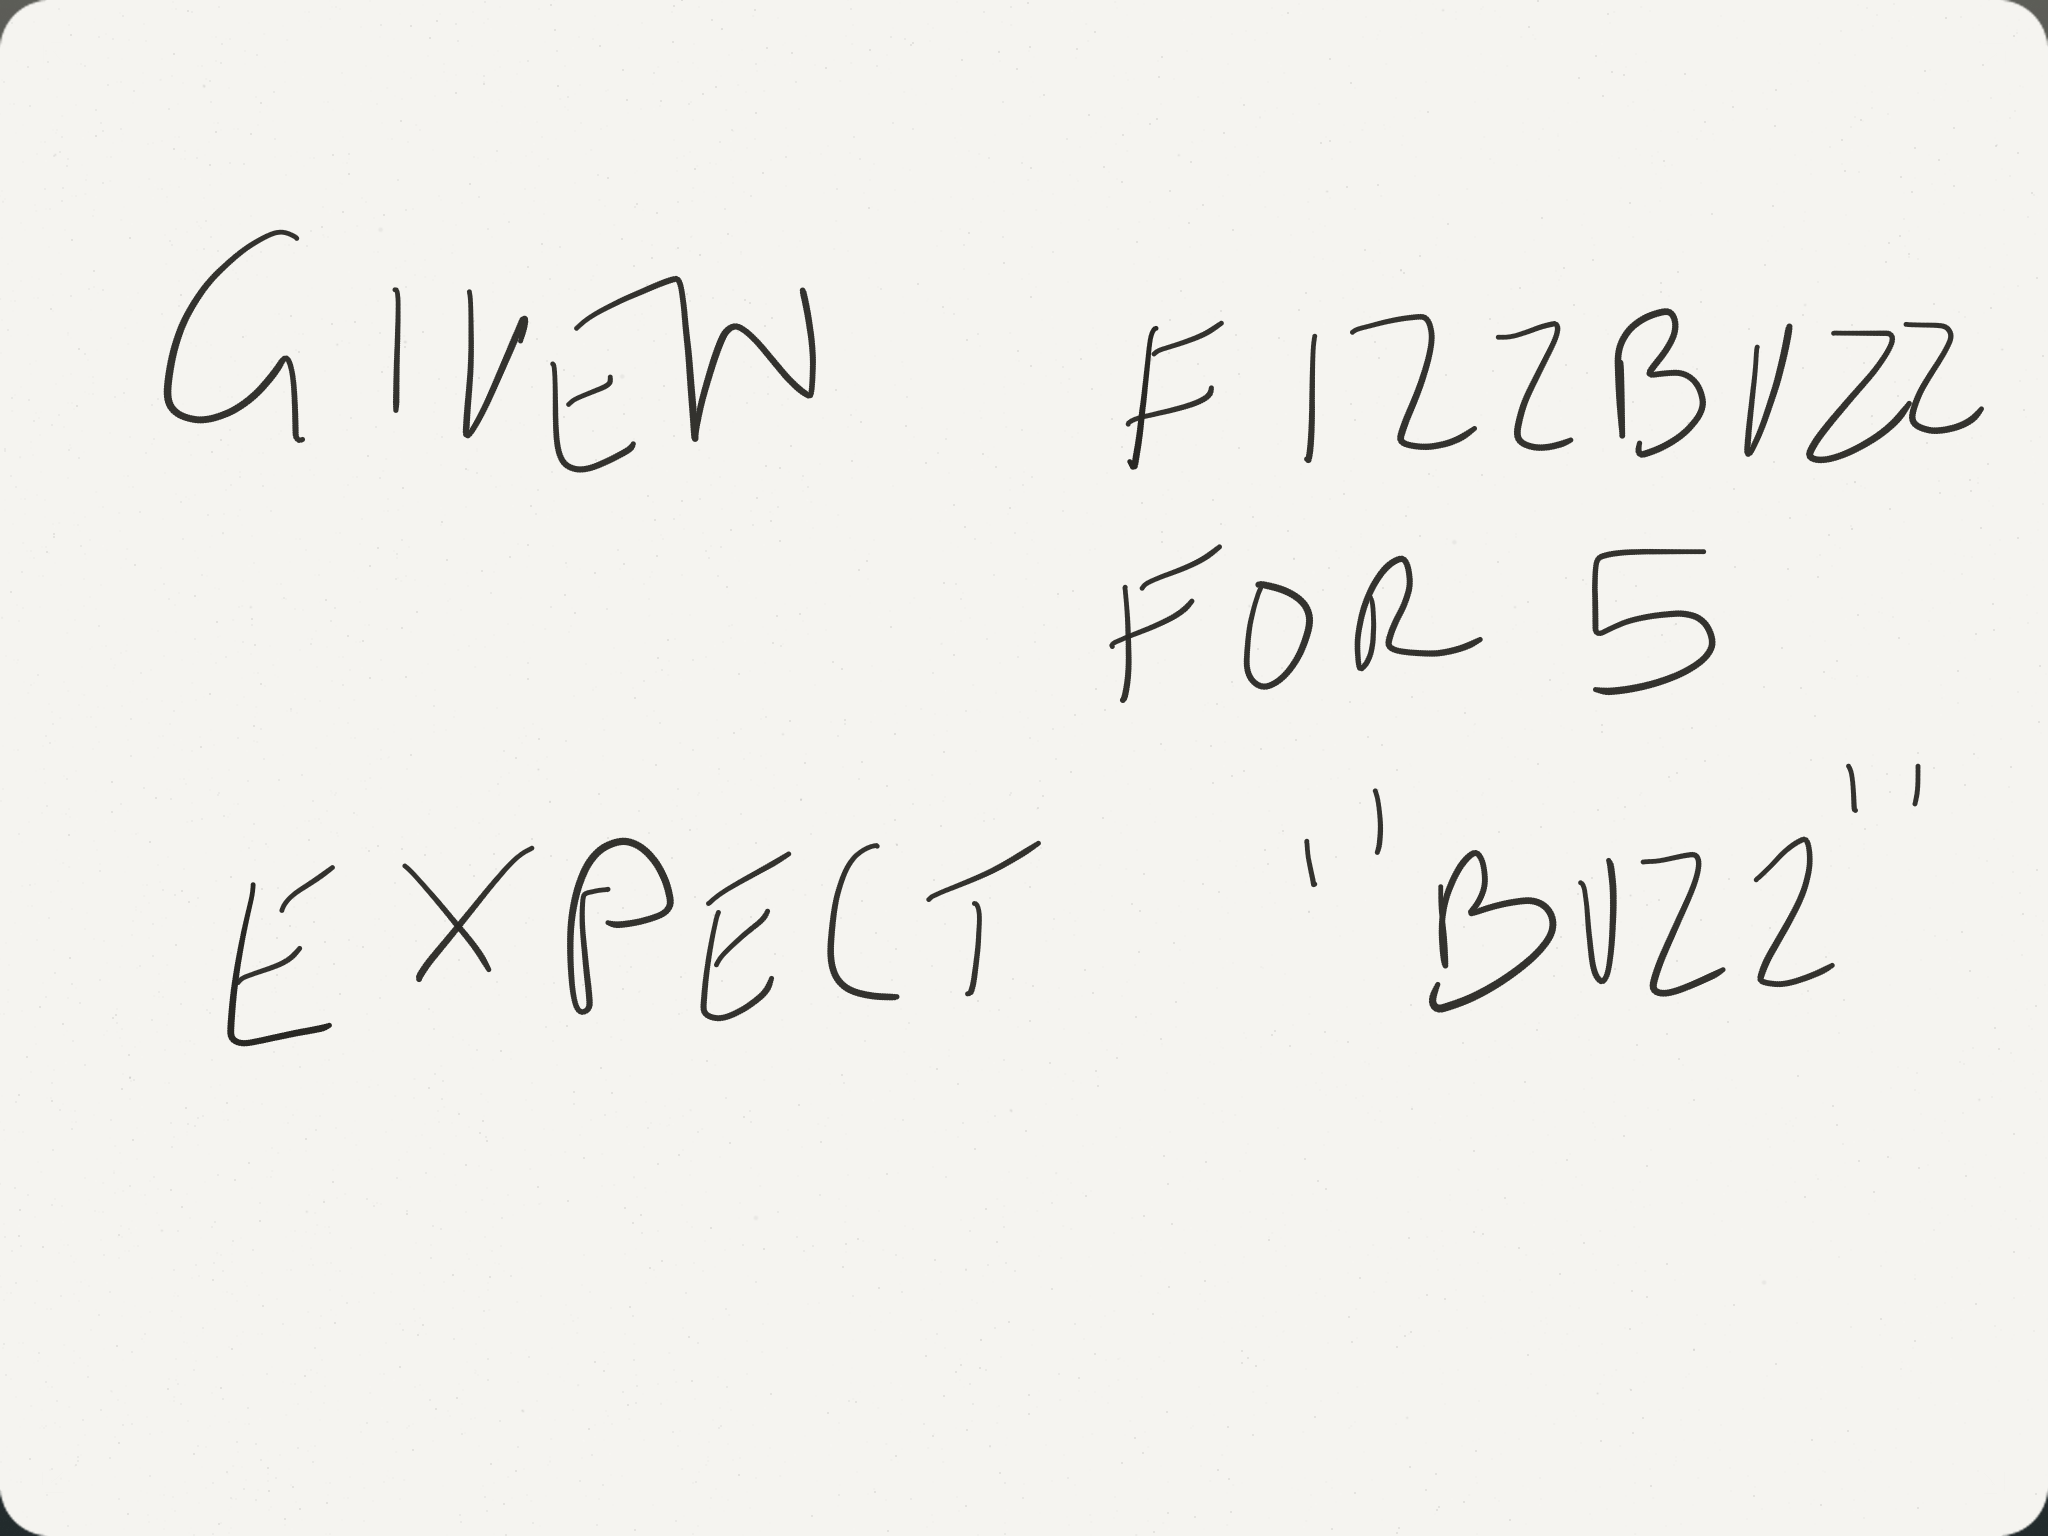 GIVEN FIZZBUZZ
FOR 5
EXPECT "BUZZ"